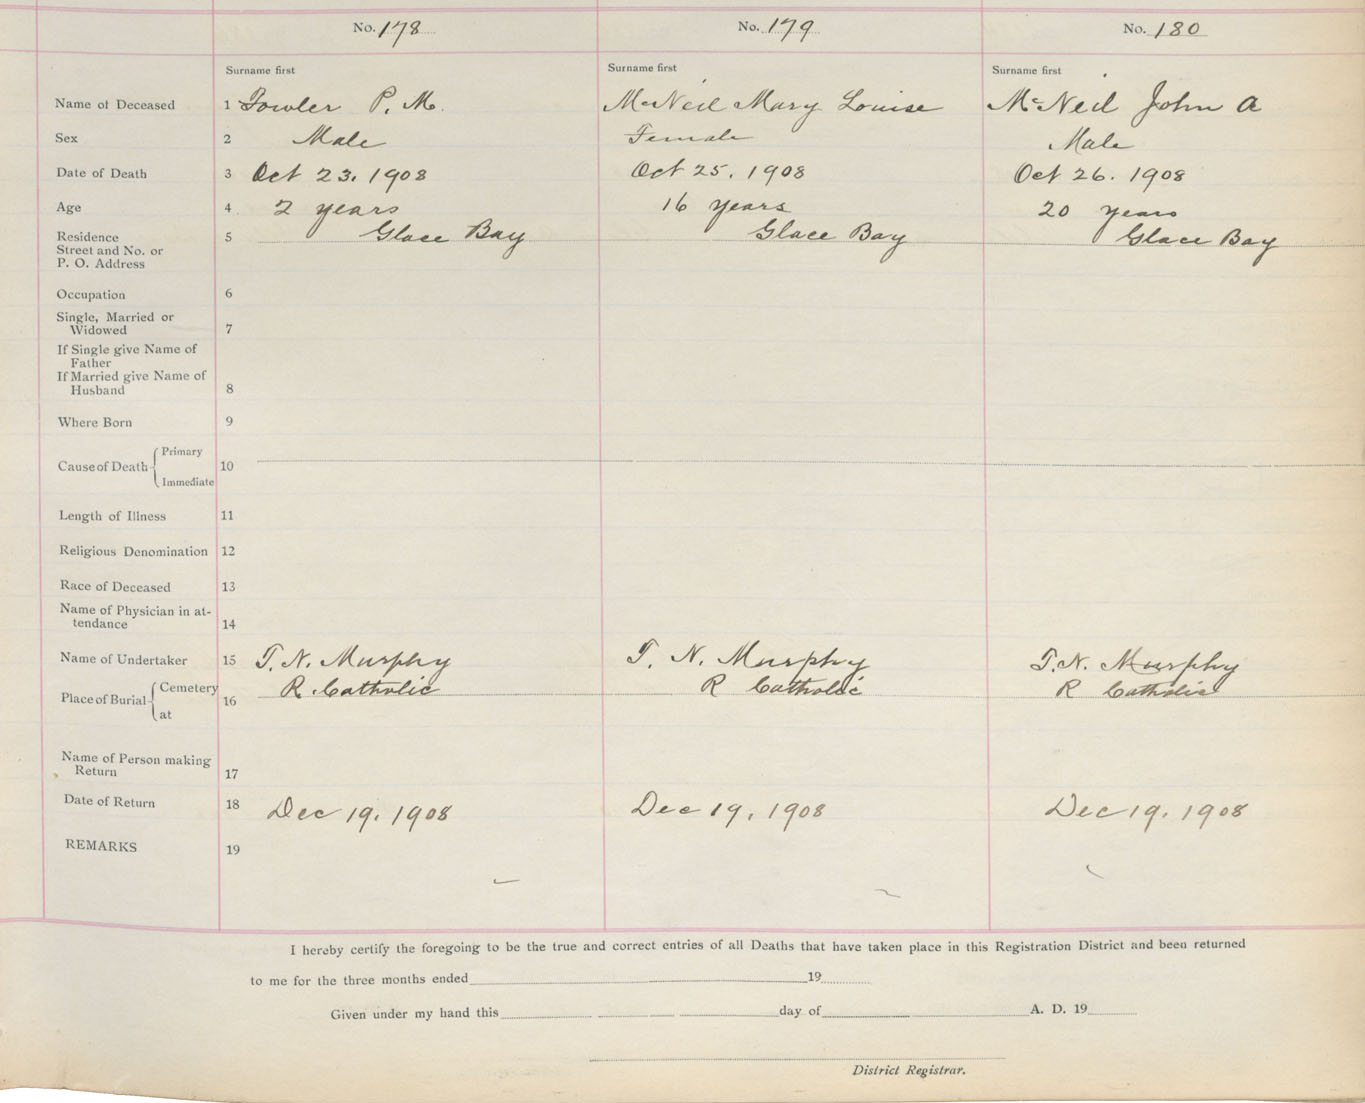 No. 178 No. 179 No. 180
Surname first Surname first Surname first
Name of Deceased 1 Fowler P. M. McNeil Mary Louise McNeil John A
Sex 2 Male Female Male
Date of Death 3 Oct 23. 1908 Oct 25. 1908 Oct 26. 1908
Age 4 2 years 16 years 20 years
Residence 5 Glace Bay Glace Bay Glace Bay
Street and No. or
P. O. Address
Occupation 6
Single, Married or
Widowed 7
If Single give Name of
Father
If Married give Name of
Husband 8
Where Born 9
Cause of Death Primary 10
Immediate
Length of Illness 11
Religious Denomination 12
Race of Deceased 13
Name of Physician in at-
tendance 14
Name of Undertaker 15 T. N. Murphy T. N. Murphy T. N. Murphy
Place of Burial Cemetery 16 R. Catholic R Catholic R Catholic
at
Name of Person making
Return 17
Date of Return 18 Dec 19. 1908 Dec 19, 1908 Dec 19. 1908
REMARKS 19
I hereby certify the foregoing to be the true and correct entries of all Deaths that have taken place in this Registration District and been returned
to me for the three months ended 19
Given under my hand this day of A. D. 19
District Registrar.